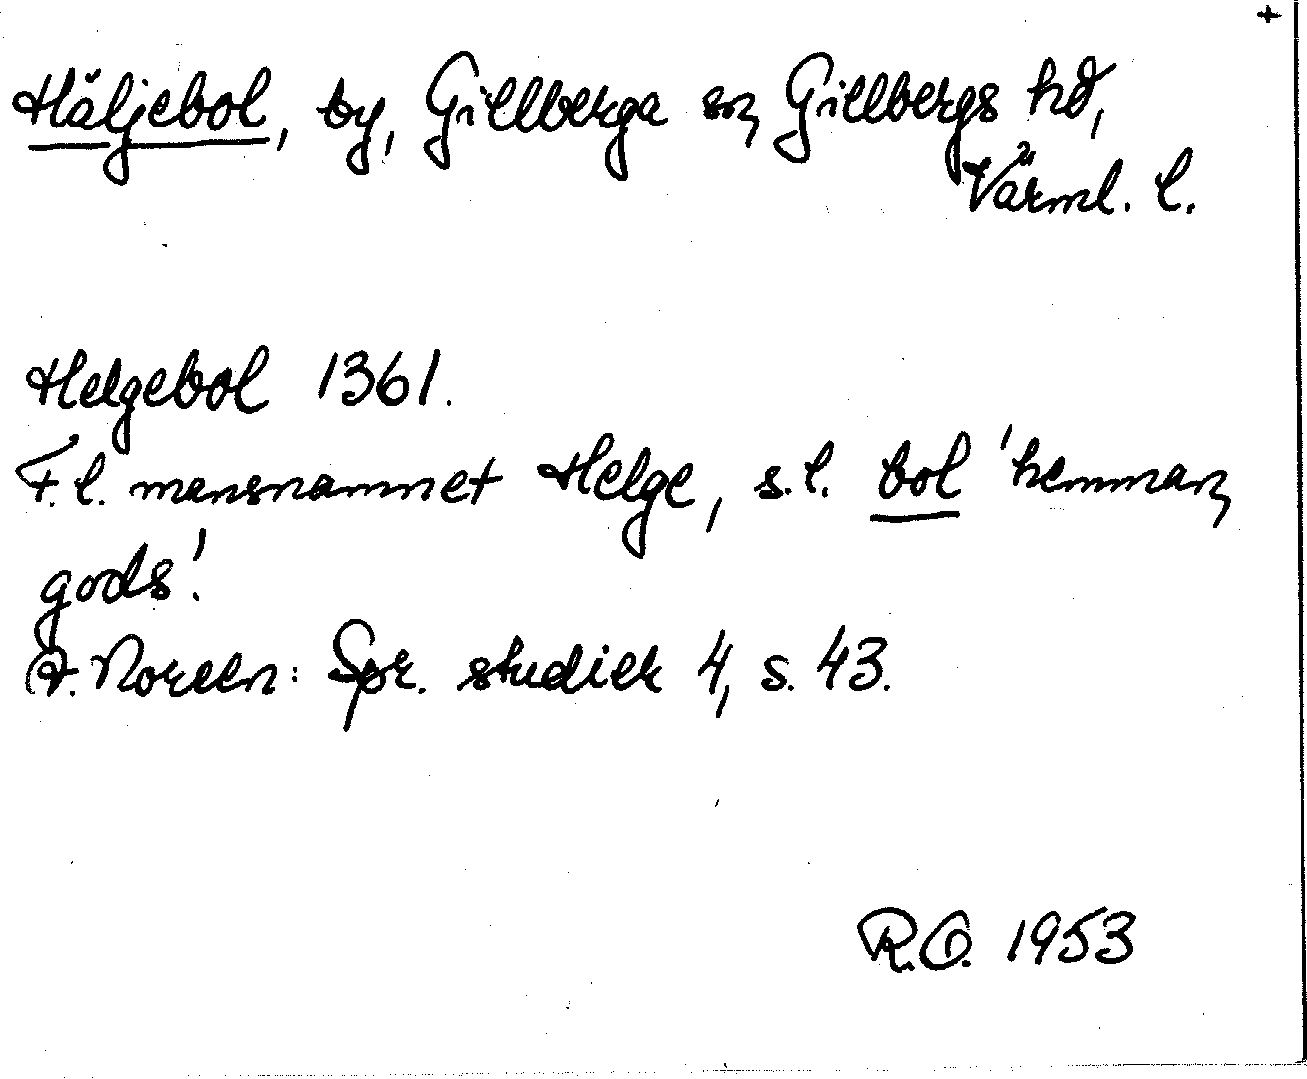 +
Häljebol, by, Gillberga sn, Gillbergs hd,
Värml. l.
Helgebol 1361.
F.l. mansnamnet Helge, s.l. bol 'hemman,
gods'.
A. Noreen: Spr. studier 4, s. 43.
R.O. 1953